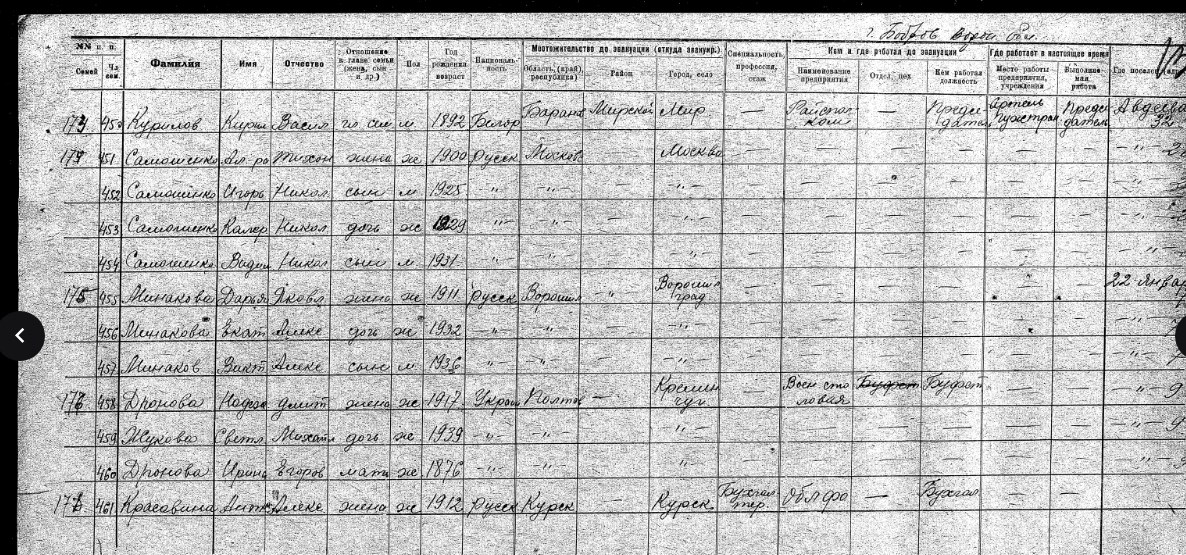 г. Бобров Ворон. обл.
№№ п. п. Фамилия Имя Отчество Отношение к главе семьи (жена, сын и др.) Пол Год рождения возраст Националь-ность Местожительство до эвакуации (откуда эвакуир.) Специальность, профессия, стаж Кем и где работал до эвакуации Где работает в настоящее время Где поселен
Семей Чл. сем. Область, (край), республика) Район Город, село Наименование предприятия Отдел, цех Кем работал должность Место работы предприятия, учреждения Выполняе-мая работа
173 450 Курилов Кирил Васил гл сем м 1892 Белор Баран Мирской Мир — Райспол-ком — Предсе-датель Артель Предсе-датель Авдеева 32
451 Самошенко Ал-ра Тихон жена ж 1900 Русск Москов Москва — — — — — —
452 Самошенко Игорь Никол сын м 1925 -"- -"- -"- — — — — — —
453 Самошенко Калер Никол дочь ж 1929 -"- -"- -"- — — — — — —
454 Самошенко Вадим Никол сын м 1931 -"- -"- -"- — — — — — —
175 455 Минакова Дарья Яковл жена ж 1911 Русск Ворошил " Ворошил град — — — — " — 22 Январ
456 Минакова Екат Алекс дочь ж 1932 -"- -"- — -"- — — — — — —
457 Минаков Викт Алекс сын м 1936 -"- -"- — -"- — — — — — —
458 Дронова Надеж Дмит жена ж 1917 Украи Полтав — Кремен чуг — Воен сто ловая Буфет Буфет — — -"- 9
459 Жукова Светл Михайл дочь ж 1939 -"- -"- -"- — — — — — — -"- 9
460 Дронова Ирина Егоров мать ж 1876 -"- -"- — -"- — — — — — — -"-
461 Красавина Ант Алекс жена ж 1912 Русск Курск — Курск Бухгал тер. Облфо — Бухгал — —